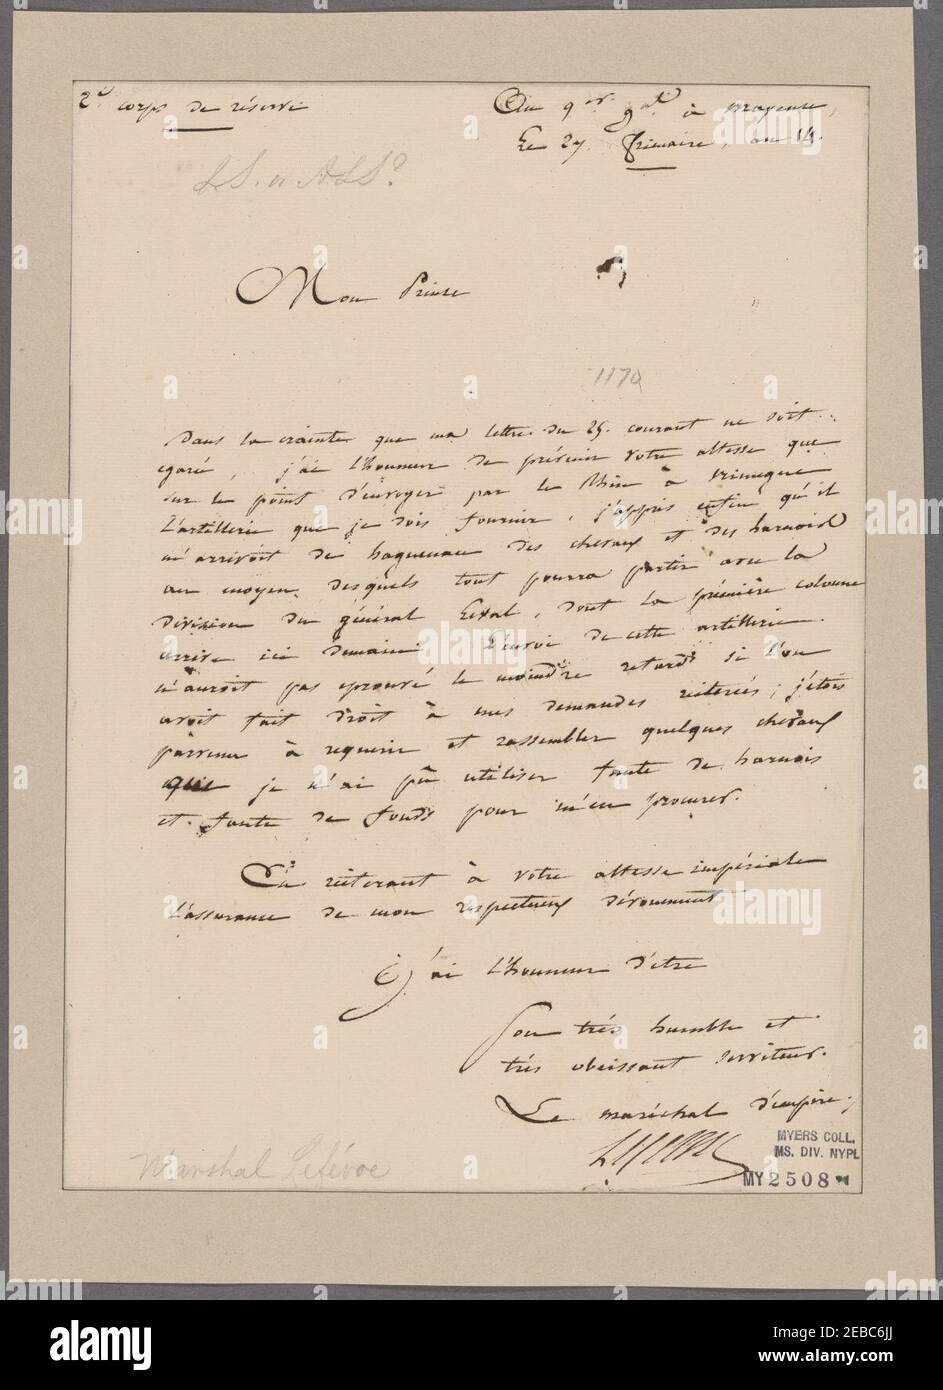 2.e corps de réserve
Au q.er g.al à mayence,
Le 27. frimaire, an 14.
LS. or ALS?
Mon Prince
1170
Dans la crainte que ma lettre du 25. courant ne soit
egaré, j'ai l'honneur de prévenir votre altesse que
sur le point d'envoyer par le Rhin à nimegue
l'artillerie que je dois fournir, j'appris enfin qu'il
m'arrivoit de haguenau des chevaux et des harnois
au moyen desquels tout pourra partir avec la
division du général Leval, dont la première colonne
arrive ici demain. L'envoi de cette artillerie
n'auroit pas eprouvé le moindre retard si l'on
avoit fait droit à mes demandes reiterées; j'etois
parvenu à requerir et rassembler quelques chevaux
que je n'ai pû utiliser faute de harnois
et faute de fonds pour m'en procurer.
En reiterant à votre altesse impériale
l'assurance de mon respectueux dévouement
j'ai l'honneur d'etre
son trés humble et
trés obeissant serviteur.
Le maréchal d'empire,
Lefebvre
Marshal Lefévre
MYERS COLL.
MS. DIV. NYPL
MY 2508
alamy
Image ID: 2EBC6JJ
www.alamy.com